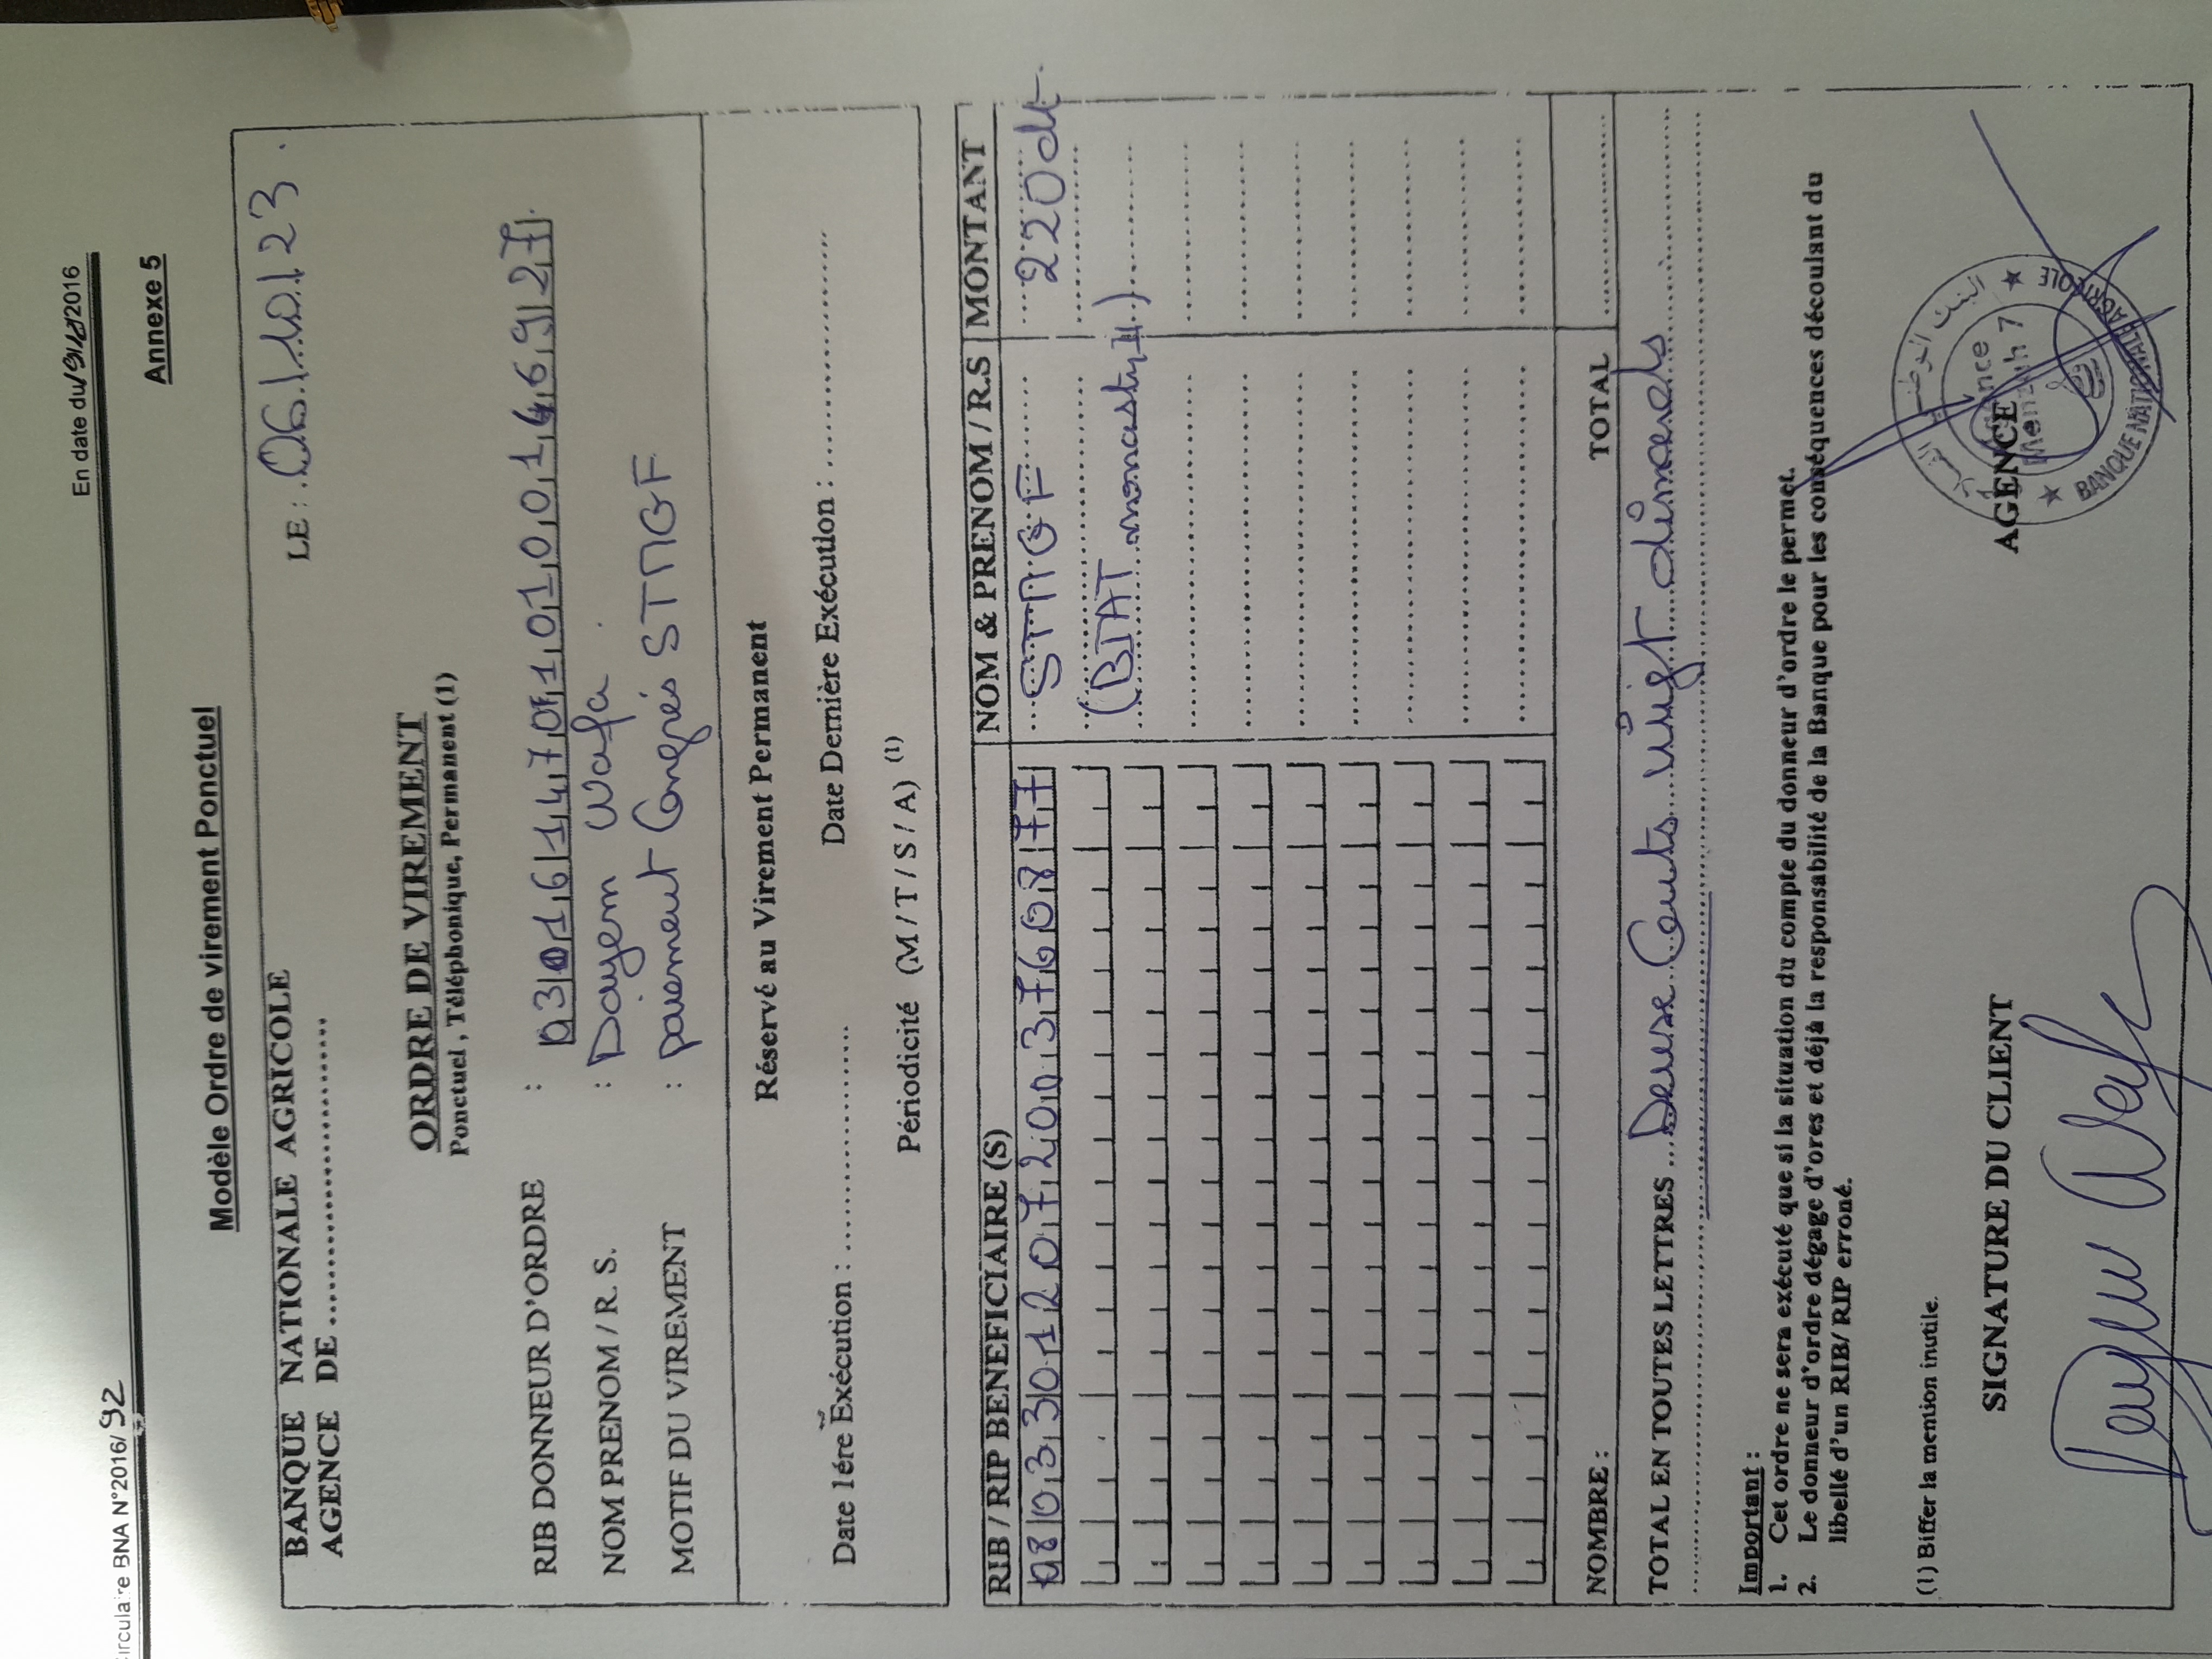 Circulaire BNA N°2016/92
En date du 19/12/2016
Annexe 5
Modèle Ordre de virement Ponctuel
BANQUE NATIONALE AGRICOLE
AGENCE DE ........................
LE : 06/10/23.
ORDRE DE VIREMENT
Ponctuel , Téléphonique, Permanent (1)
RIB DONNEUR D'ORDRE :
NOM PRENOM / R. S. : Dayem Wafa.
MOTIF DU VIREMENT : paiement Congrés STMGF
Réservé au Virement Permanent
Date 1ére Exécution : ........................ Date Dernière Exécution : ........................
Périodicité (M / T / S / A) (1)
RIB / RIP BENEFICIAIRE (S) NOM & PRENOM / R.S MONTANT
08033012072003760877 STMGF 220dt.
(BIAT monastyII)
NOMBRE : TOTAL
TOTAL EN TOUTES LETTRES Deux Cents vingt dinards
Important :
1. Cet ordre ne sera exécuté que si la situation du compte du donneur d'ordre le permet.
2. Le donneur d'ordre dégage d'ores et déjà la responsabilité de la Banque pour les conséquences découlant du
libellé d'un RIB/ RIP erroné.
(1) Biffer la mention inutile.
SIGNATURE DU CLIENT AGENCE
Dayem Wafa
Agence
Menzah 7
BANQUE NATIONALE AGRICOLE